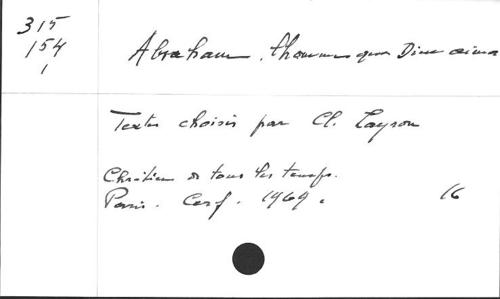 315
154
1
Abraham, l'homme que Dieu aima
Textes choisis par Cl. Layron
Chrétiens de tous les temps.
Paris. Cerf. 1969.
16